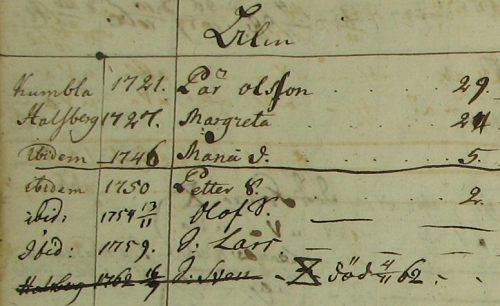 Kumbla 1721. Pär olsson . . . 29.
Halsberg 1727. Margreta . . . 24
ibidem 1746 Maria D. . . . 5.
ibidem 1750 Petter S. . . . 2.
ibid: 1754 13/11 Olof S. — —
Ibid: 1759. D: Lars — —
Halsberg 1762 D: Sven - död 4/11 62. -